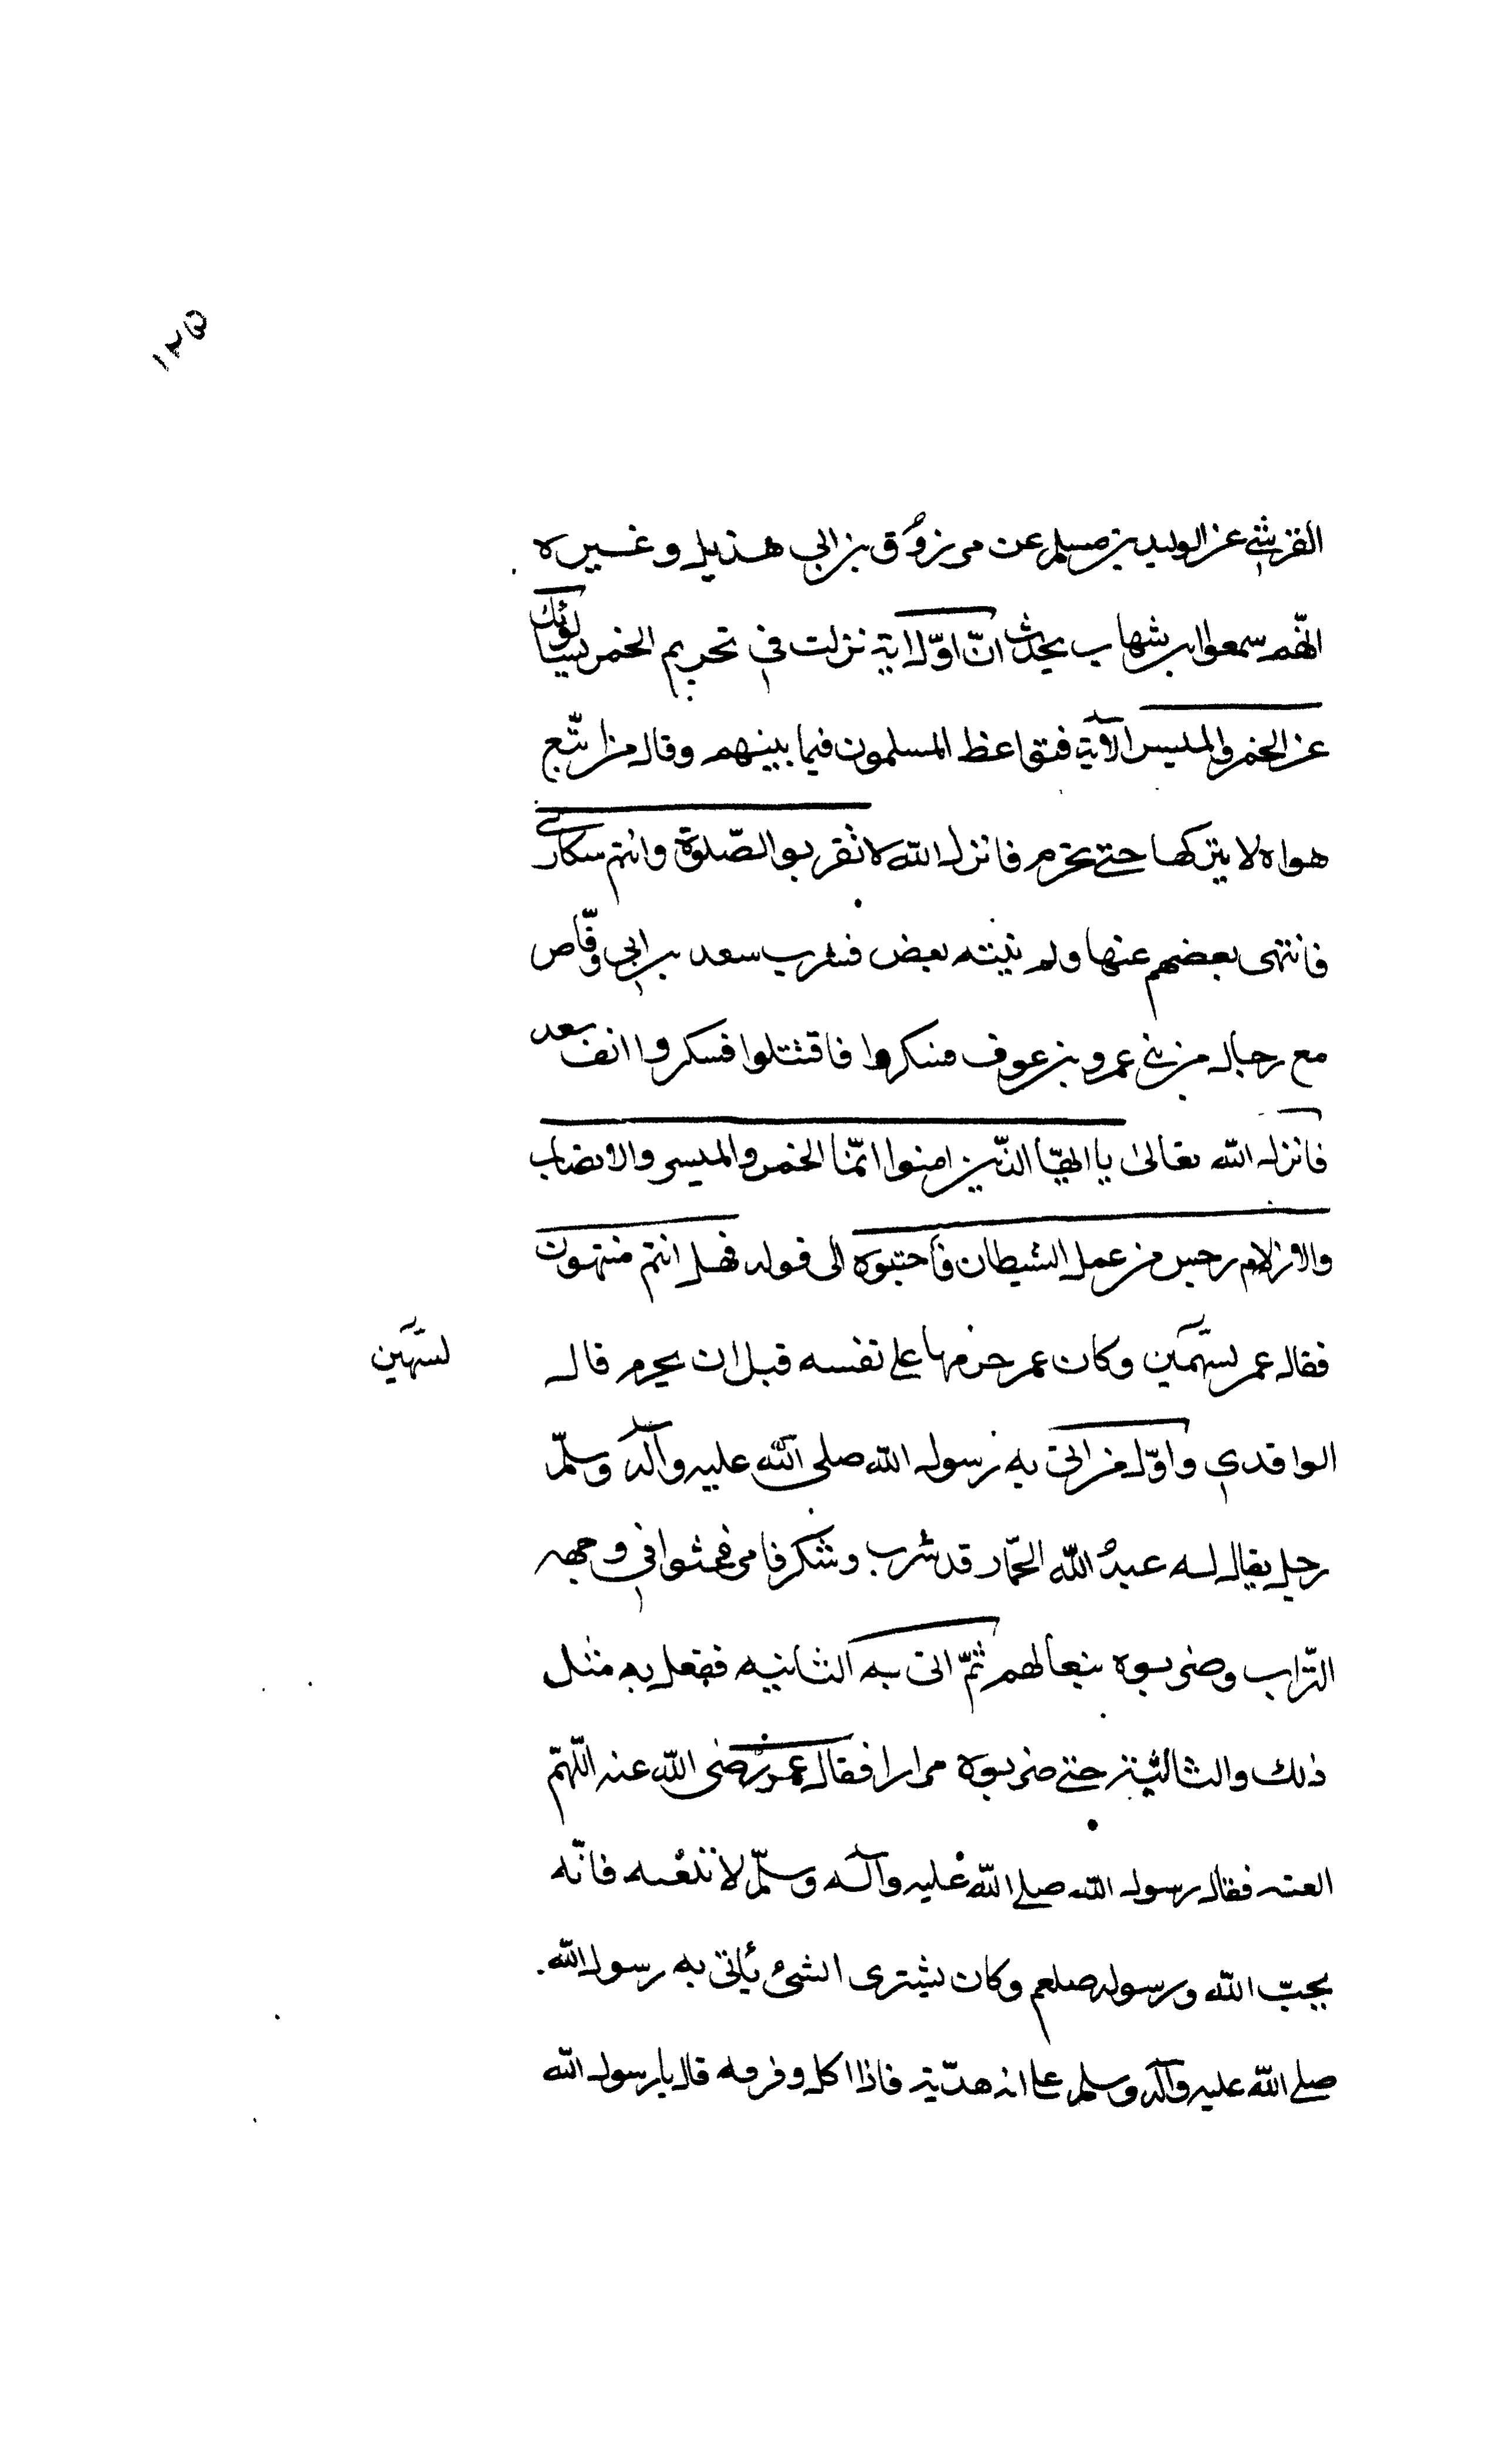 ١٢٥
القرشي عن الوليد بن مسلم عن مرزوق بن ابي هذيل وغيره
انّهم سمعوا ابن شهاب يحدّث انّ اوّل اية نزلت في تحريم الخمر يسألونك
عن الخمر والميسر الآية فتواعظ المسلمون فيما بينهم وقال من اتّبع
هواه لا يتركها حتى يحرم فانزل الله لا تقربوا الصّلوة وانتم سكارى
فانتهى بعضهم عنها ولم ينته بعض فشرب سعد بن ابي وقّاص
مع رجال من بني عمرو بن عوف فسكروا فاقتتلوا فسكروا انف سعد
فانزل الله تعالى يا ايهّا الذّين امنوا انّما الخمر والميسر والانصاب
والازلام رجس من عمل الشيطان فاجتنبوه الى قوله فهل انتم منتهون
فقال عمر وكان عمر حرمها على نفسه قبل ان يحرم قال
الواقدي واوّل من اتى به رسول الله صلى الله عليه وآله وسلّم
رجل يقال له عبدُ الله الحمّار قد شرب وسكر فامر فحثوا في وجهه
التّراب وضربوه بنعالهم ثمّ اتى به الثانيه ففعل به مثل
ذلك والثالثة حتى ضربوه مرارا فقال عمر رضى الله عنه اللّهمّ
العنه فقال رسول الله صلى الله عليه وآله وسلّم لا تلعنه فانّه
يحبّ الله ورسوله صلعم وكان يشترى الشئ يأتى به رسول الله
صلى الله عليه وآله وسلم على انه هديّة فاذا اكل وفرمه قال يا رسول الله